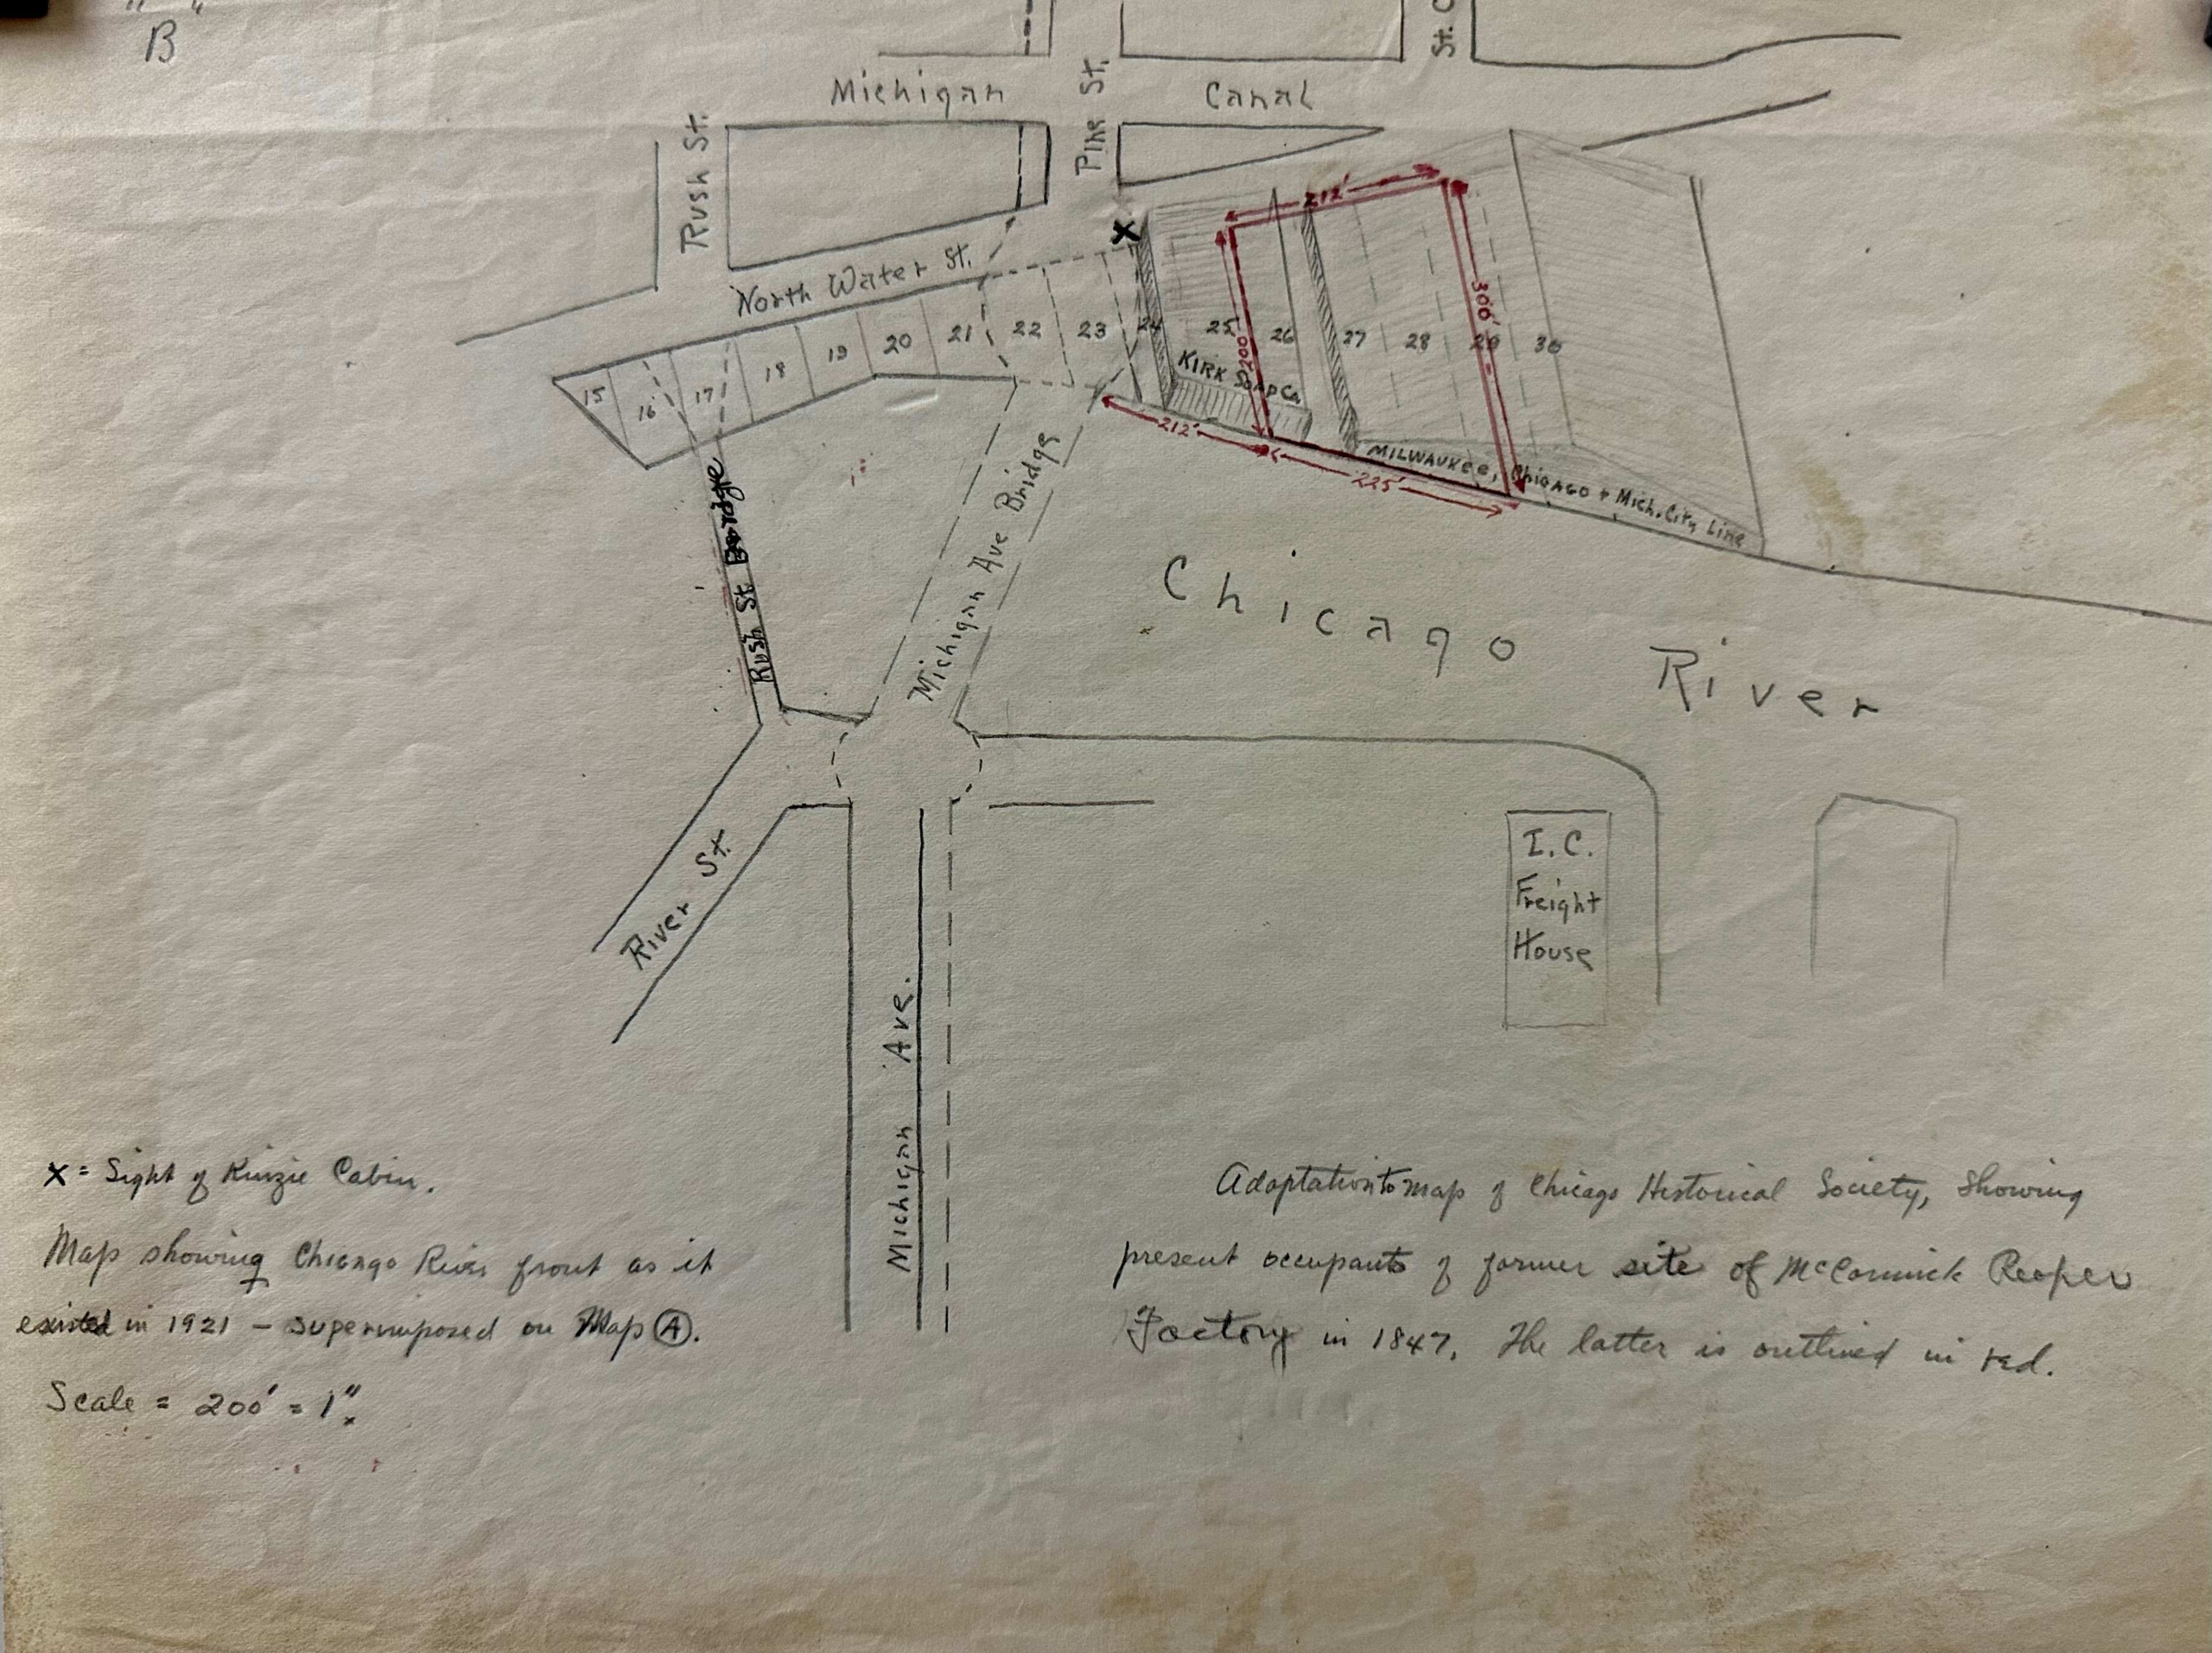 " "
B
St. C
Michigan Canal
Pine St.
Rush St.
North Water St.
X
212'
15 16 17 18 19 20 21 22 23 24 25 26 27 28 29 30
200'
300'
KIRK SOAP Co
212'
225'
MILWAUKEE, Chicago + Mich. City Line
Rush St Bridge
Michigan Ave Bridge
Chicago River
River St.
Michigan Ave.
I.C.
Freight
House
X = Sight of Kinzie Cabin.
Map showing Chicago River front as it
existed in 1921 – superimposed on Map Ⓐ.
Scale = 200' = 1".
Adaptation to map of Chicago Historical Society, Showing
present occupants of former site of McCormick Reaper
Factory in 1847. The latter is outlined in red.